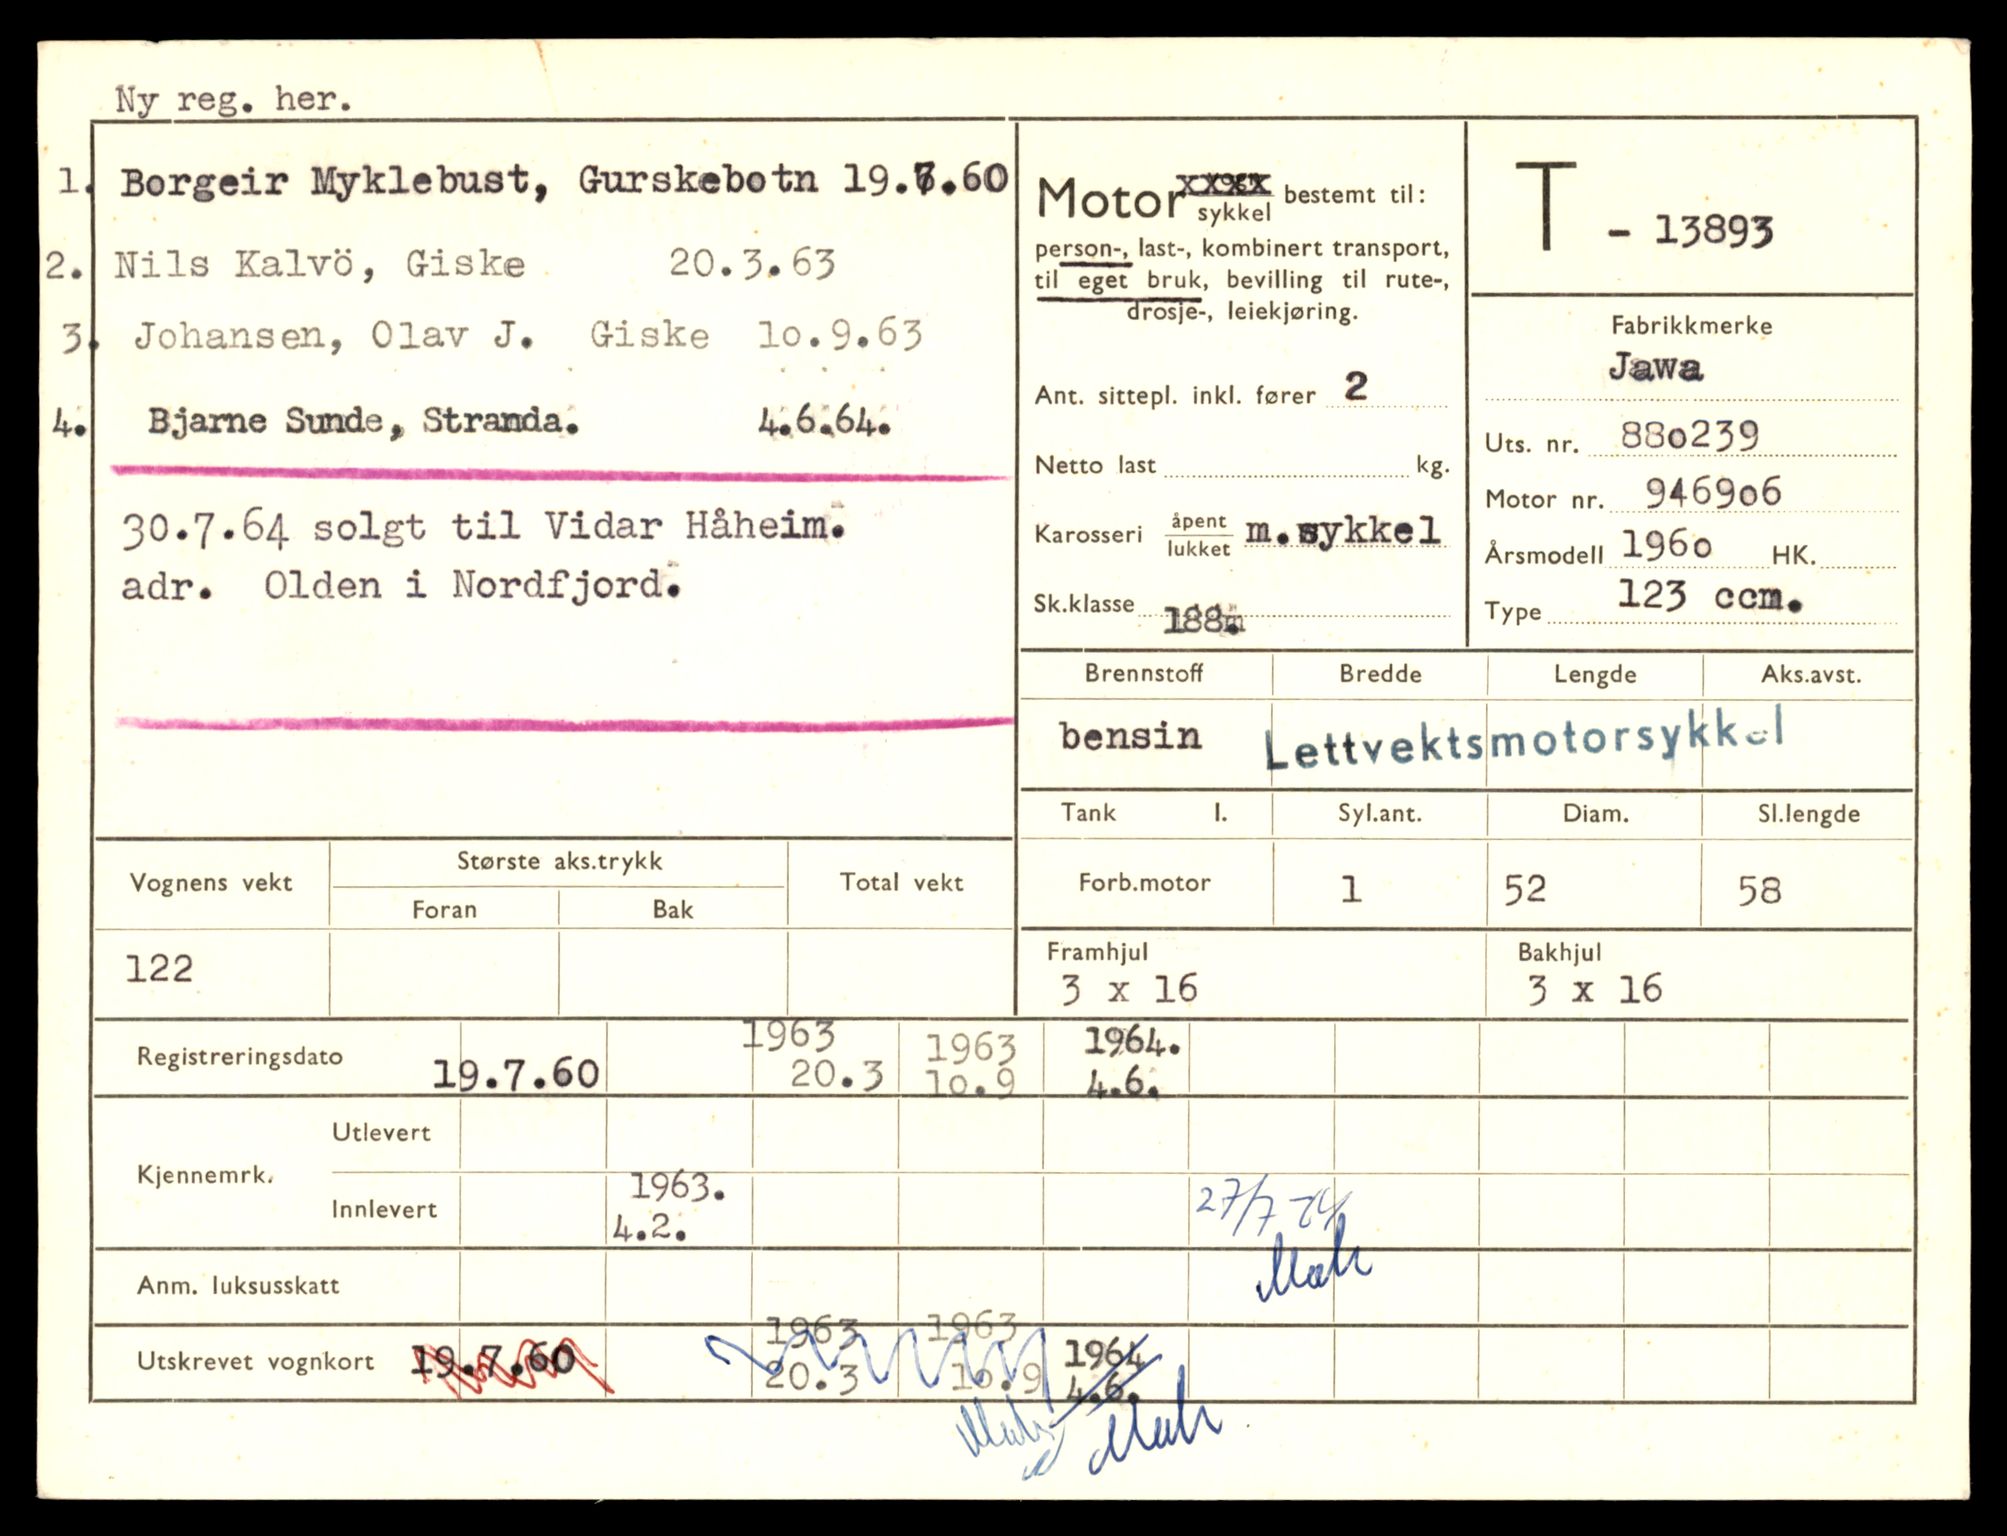 Ny reg. her.
1. Borgeir Myklebust, Gurskebotn 19.7.60
2. Nils Kalvö, Giske 20.3.63
3. Johansen, Olav J. Giske 1o.9.63
4. Bjarne Sunde, Stranda. 4.6.64.
30.7.64 solgt til Vidar Håheim.
adr. Olden i Nordfjord.
Motor xxxx sykkel bestemt til:
person-, last-, kombinert transport,
til eget bruk, bevilling til rute-,
drosje-, leiekjøring.
Ant. sittepl. inkl. fører 2
Netto last kg.
Karosseri åpent lukket m.sykkel
Sk.klasse 188.
T - 13893
Fabrikkmerke
Jawa
Uts. nr. 88o239
Motor nr. 9469o6
Årsmodell 196o HK.
Type 123 ccm.
Brennstoff Bredde Lengde Aks.avst.
bensin Lettvektsmotorsykkel
Tank l. Syl.ant. Diam. Sl.lengde
Forb.motor 1 52 58
Framhjul Bakhjul
3 x 16 3 x 16
Vognens vekt Største aks.trykk Total vekt
Foran Bak
122
Registreringsdato 19.7.60 1963 20.3 1963 1o.9 1964. 4.6.
Kjennemrk. Utlevert
Innlevert 1963. 4.2. 27/7
Anm. luksusskatt
Utskrevet vognkort 19.7.60 1963 20.3 1963 1o.9 1964 4.6.